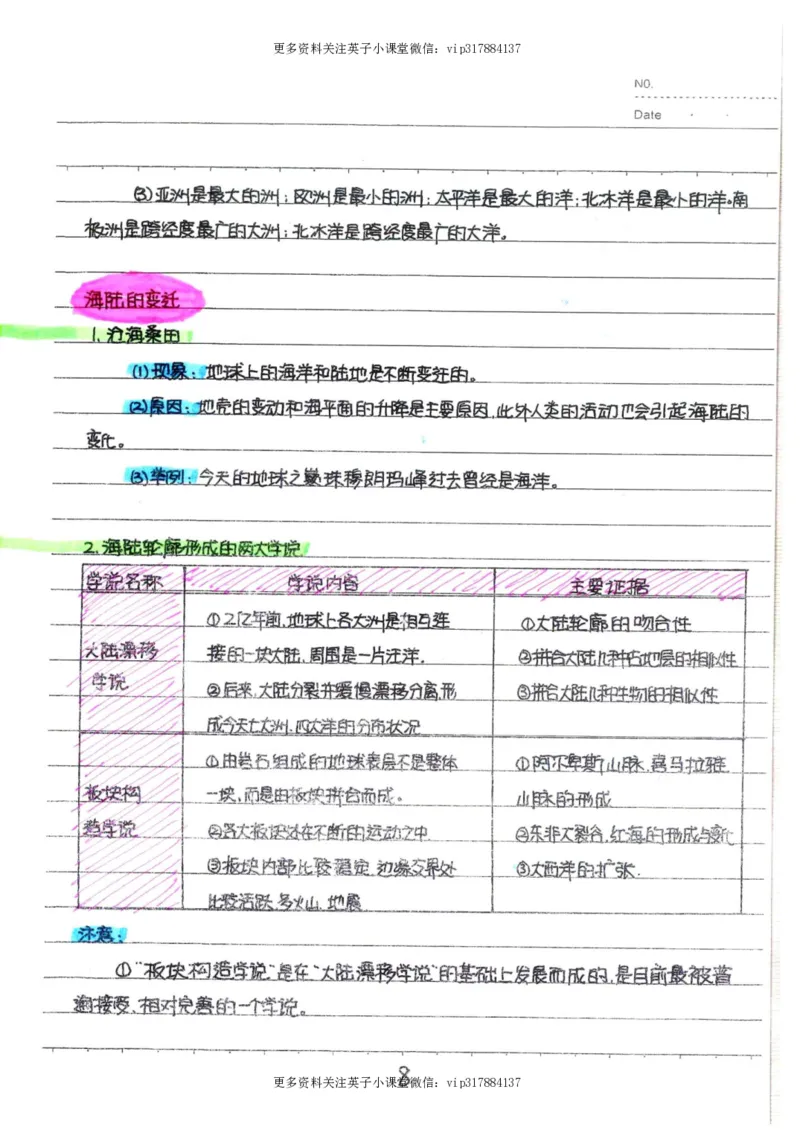 更多资料关注英子小课堂微信：vip317884137
NO.
Date
(3)亚洲是最大的洲；欧洲是最小的洲；太平洋是最大的洋；北冰洋是最小的洋。南
极洲是跨经度最广的大洲；北冰洋是跨经度最广的大洋。
海陆的变迁
1.沧海桑田
(1)现象：地球上的海洋和陆地是不断变迁的。
(2)原因：地壳的变动和海平面的升降是主要原因,此外人类的活动也会引起海陆的
变化。
(3)举例：今天的地球之巅珠穆朗玛峰过去曾经是海洋。
2.海陆轮廓形成的两大学说
学说名称 学说内容 主要证据
①2亿年前,地球上各大洲是相互连 ①大陆轮廓的吻合性
大陆漂移 接的一块大陆,周围是一片汪洋. ②拼合大陆几种古地层的相似性
学说 ②后来,大陆分裂并缓慢漂移分离,形 ③拼合大陆几种生物的相似性
成今天七大洲,四大洋的分布状况
①由岩石组成的地球表层不是整体 ①阿尔卑斯山脉,喜马拉雅
板块构 一块,而是由板块拼合而成。 山脉的形成
造学说 ②各大板块处在不断的运动之中 ②东非大裂谷,红海的形成与变化
③板块内部比较稳定,边缘交界处 ③大西洋的扩张.
比较活跃,多火山,地震
注意：
①“板块构造学说”是在“大陆漂移学说”的基础上发展而成的,是目前最被普
遍接受,相对完善的一个学说。
8
更多资料关注英子小课堂微信：vip317884137